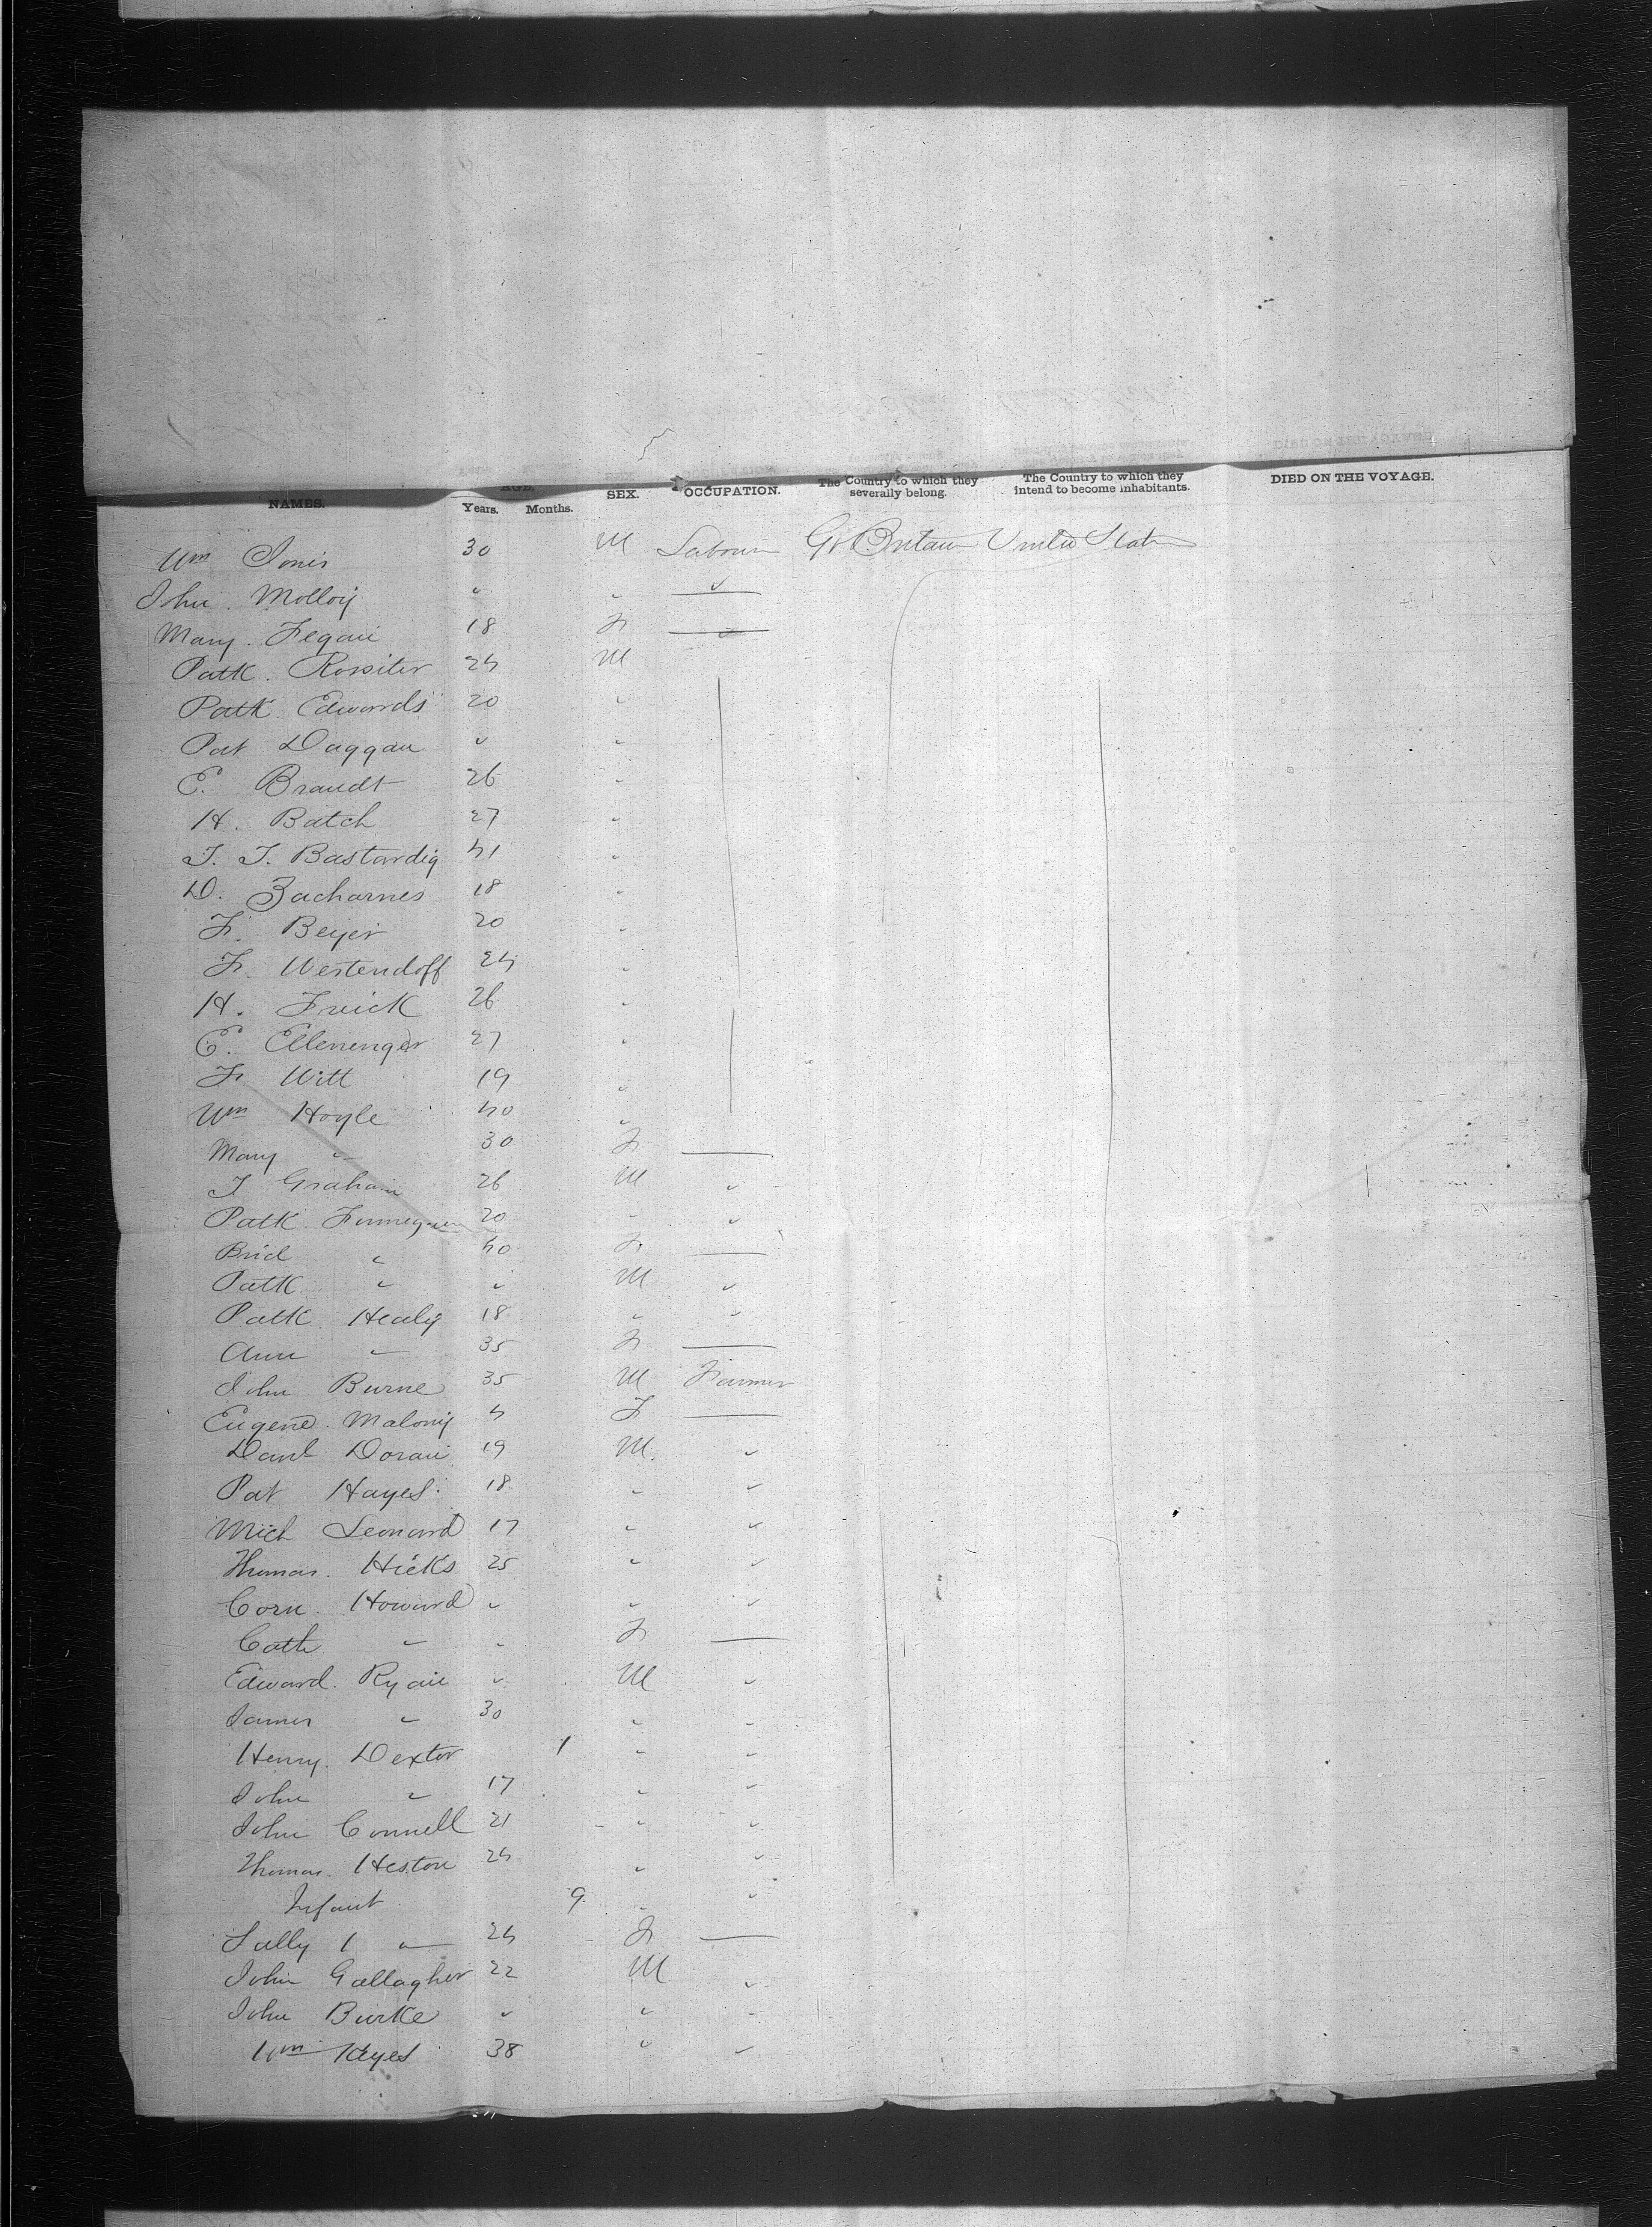 5
NAMES. AGE. Years. Months. SEX. OCCUPATION. The Country to which they severally belong. The Country to which they intend to become inhabitants. DIED ON THE VOYAGE.
Wm Jones 30 M Labourer Gt Britain United States
John Molloy " " "
Mary Fegan 18 F —
Patk Rossiter 24 M
Patk Edwards 20 "
Pat Duggan " "
E. Brandt 26 "
H. Batch 27 "
J. J. Bastardig 41 "
D. Zacharnes 18 "
F. Beyer 20 "
F. Westendoff 24 "
H. Frick 26 "
E. 27 "
F. Witt 19 "
Wm Hoyle 40 "
Mary " 30 F —
J Graham 26 M "
Patk Finnegan 20 " "
Brid " 40 F —
Patk " " M "
Patk Healy 18 " "
Ann " 35 F —
John Burne 35 M Farmer
Eugene Malony 4 F —
Danl Doran 19 M "
Pat Hayes 18 " "
Mich Leonard 17 " "
Thomas Hicks 25 " "
Corn Howard " " "
Cath " " F —
Edward Ryan " M "
James " 30 " "
Henry Dexter 1 " "
John " 17 " "
John Connell 21 " "
Thomas Heston 24 " "
Infant 9 " "
Sally " 24 F —
John Gallagher 22 M "
John Burke " " "
Wm Keyes 38 " "